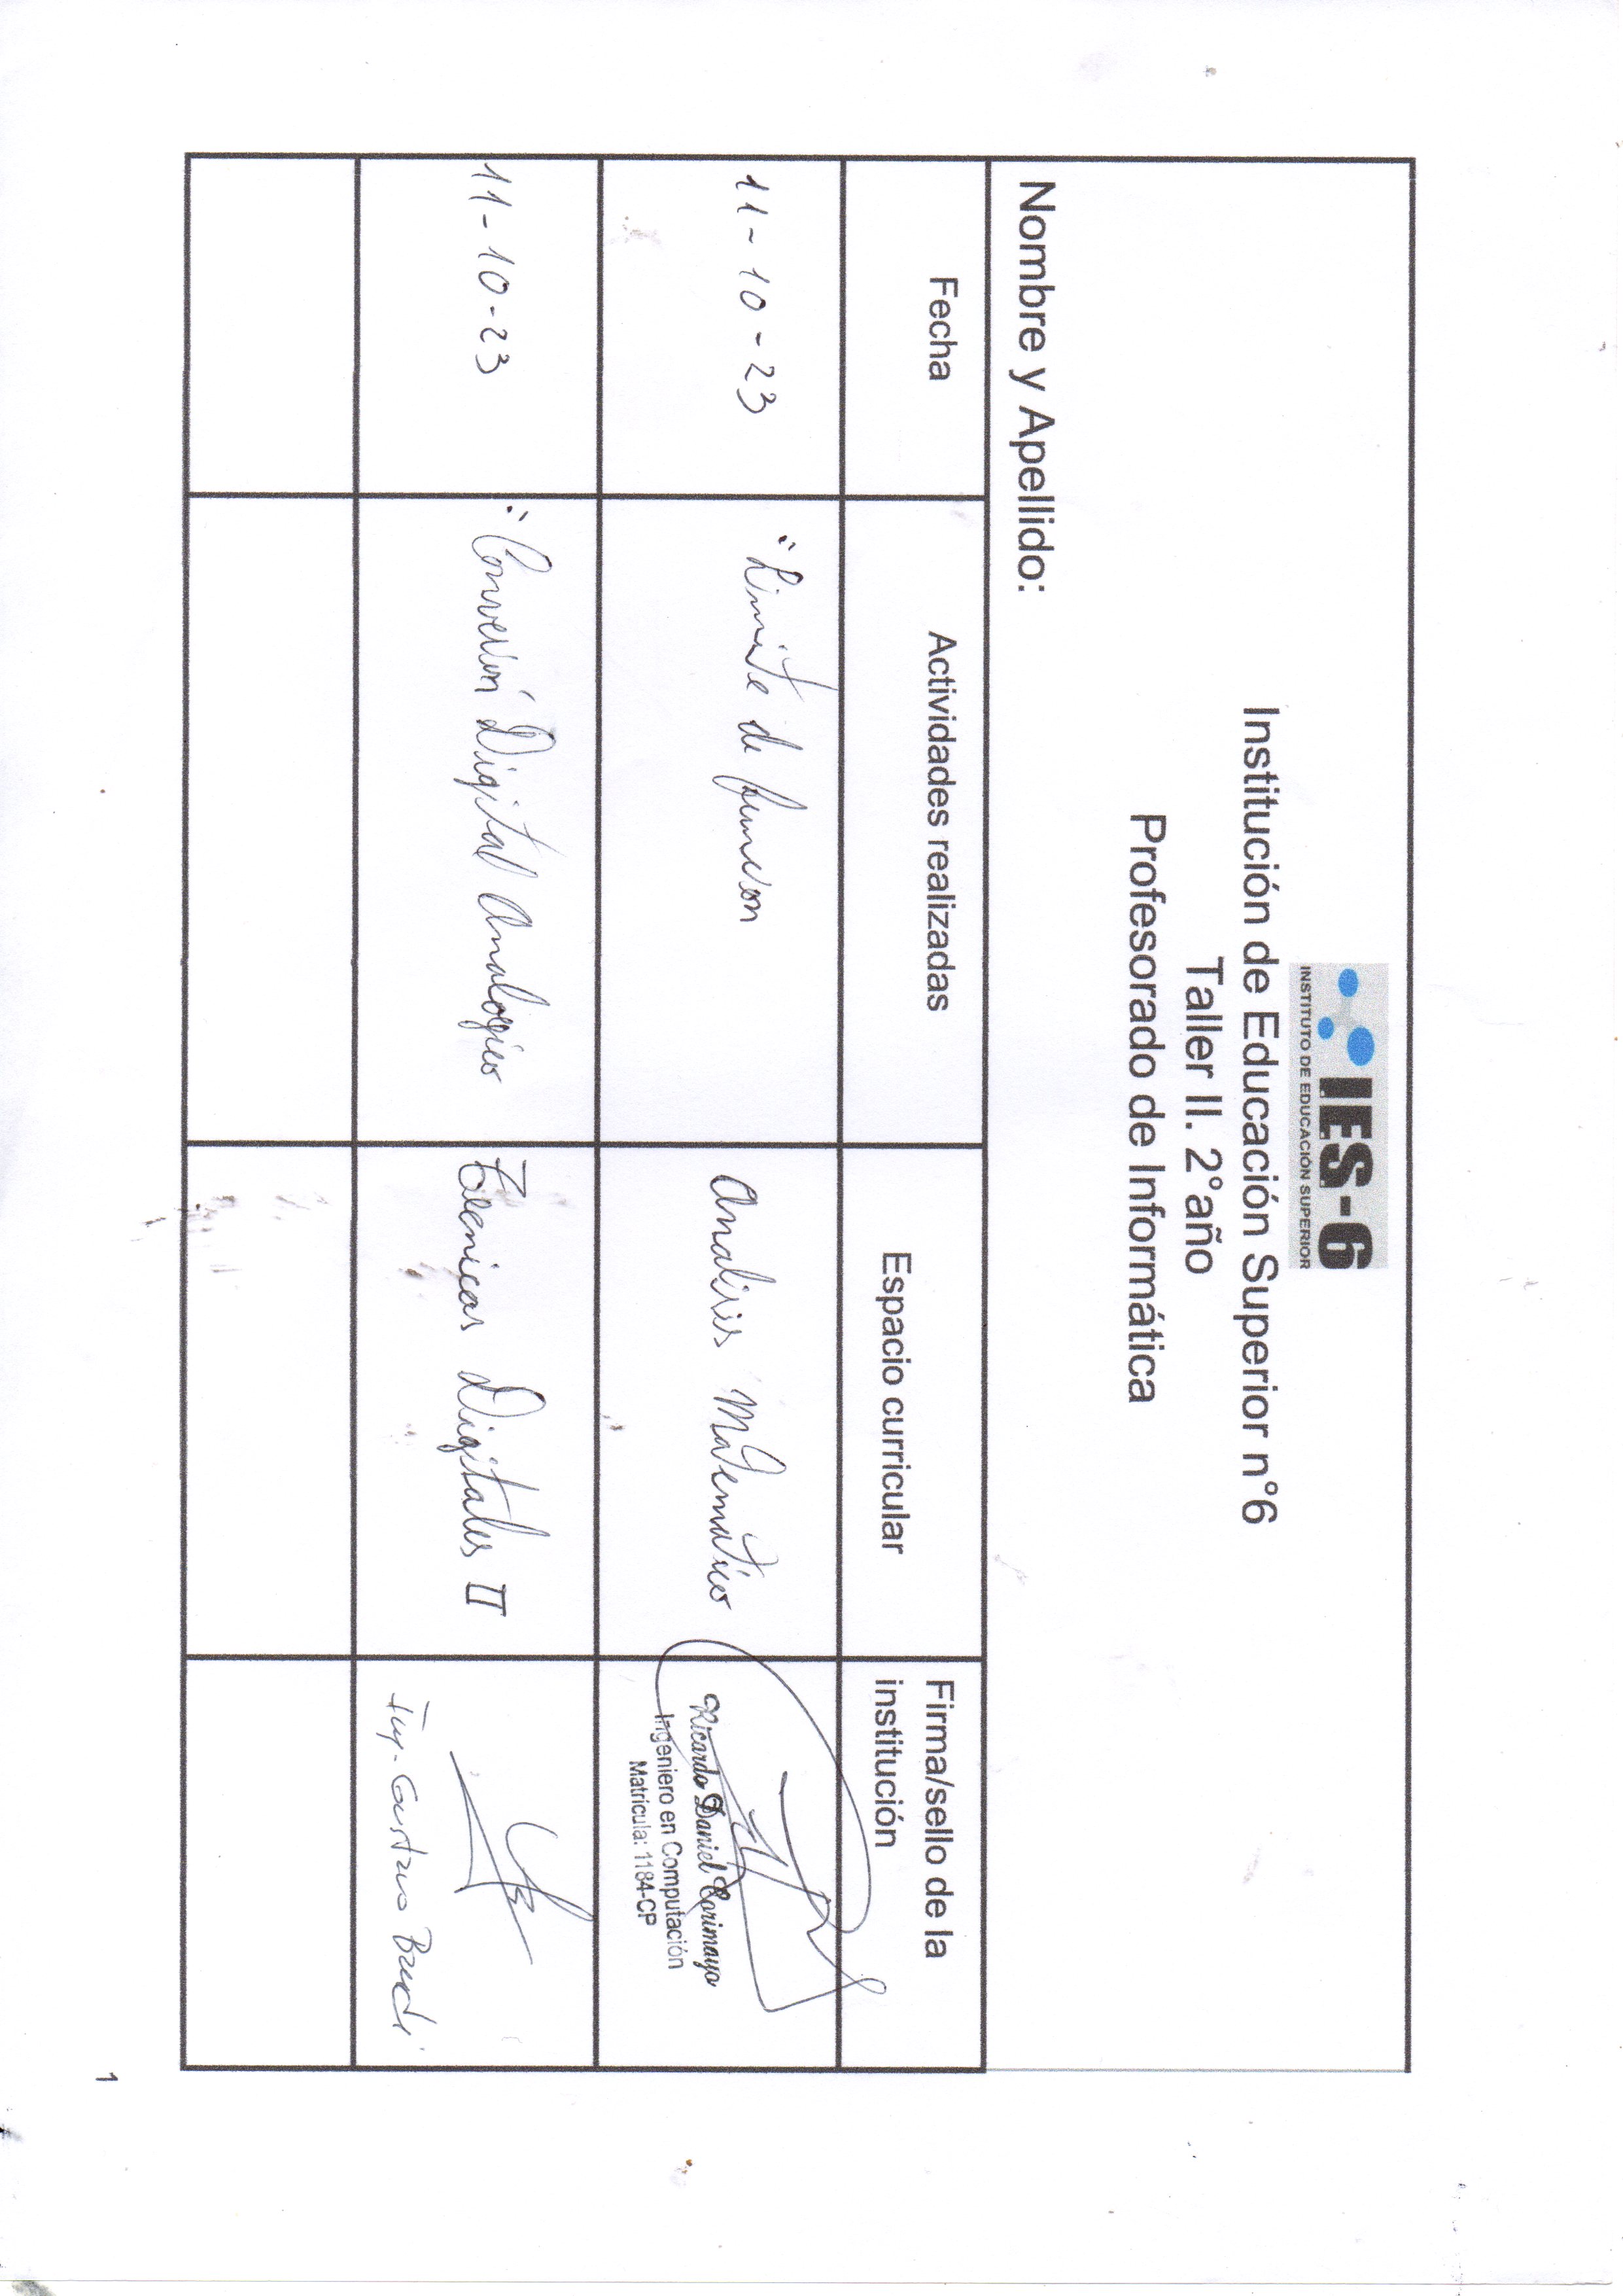 IES-6
INSTITUTO DE EDUCACIÓN SUPERIOR
Institución de Educación Superior n°6
Taller II. 2°año
Profesorado de Informática
Nombre y Apellido:
Fecha
Actividades realizadas
Espacio curricular
Firma/sello de la
institución
11-10-23
"Limite de funcion
Analisis Matematico
Ricardo Daniel Carimayo
Ingeniero en Computación
Matrícula: 1184-CP
11-10-23
"Conversión Digital Analogico
Tecnicas Digitales II
Ing. Gustavo
1